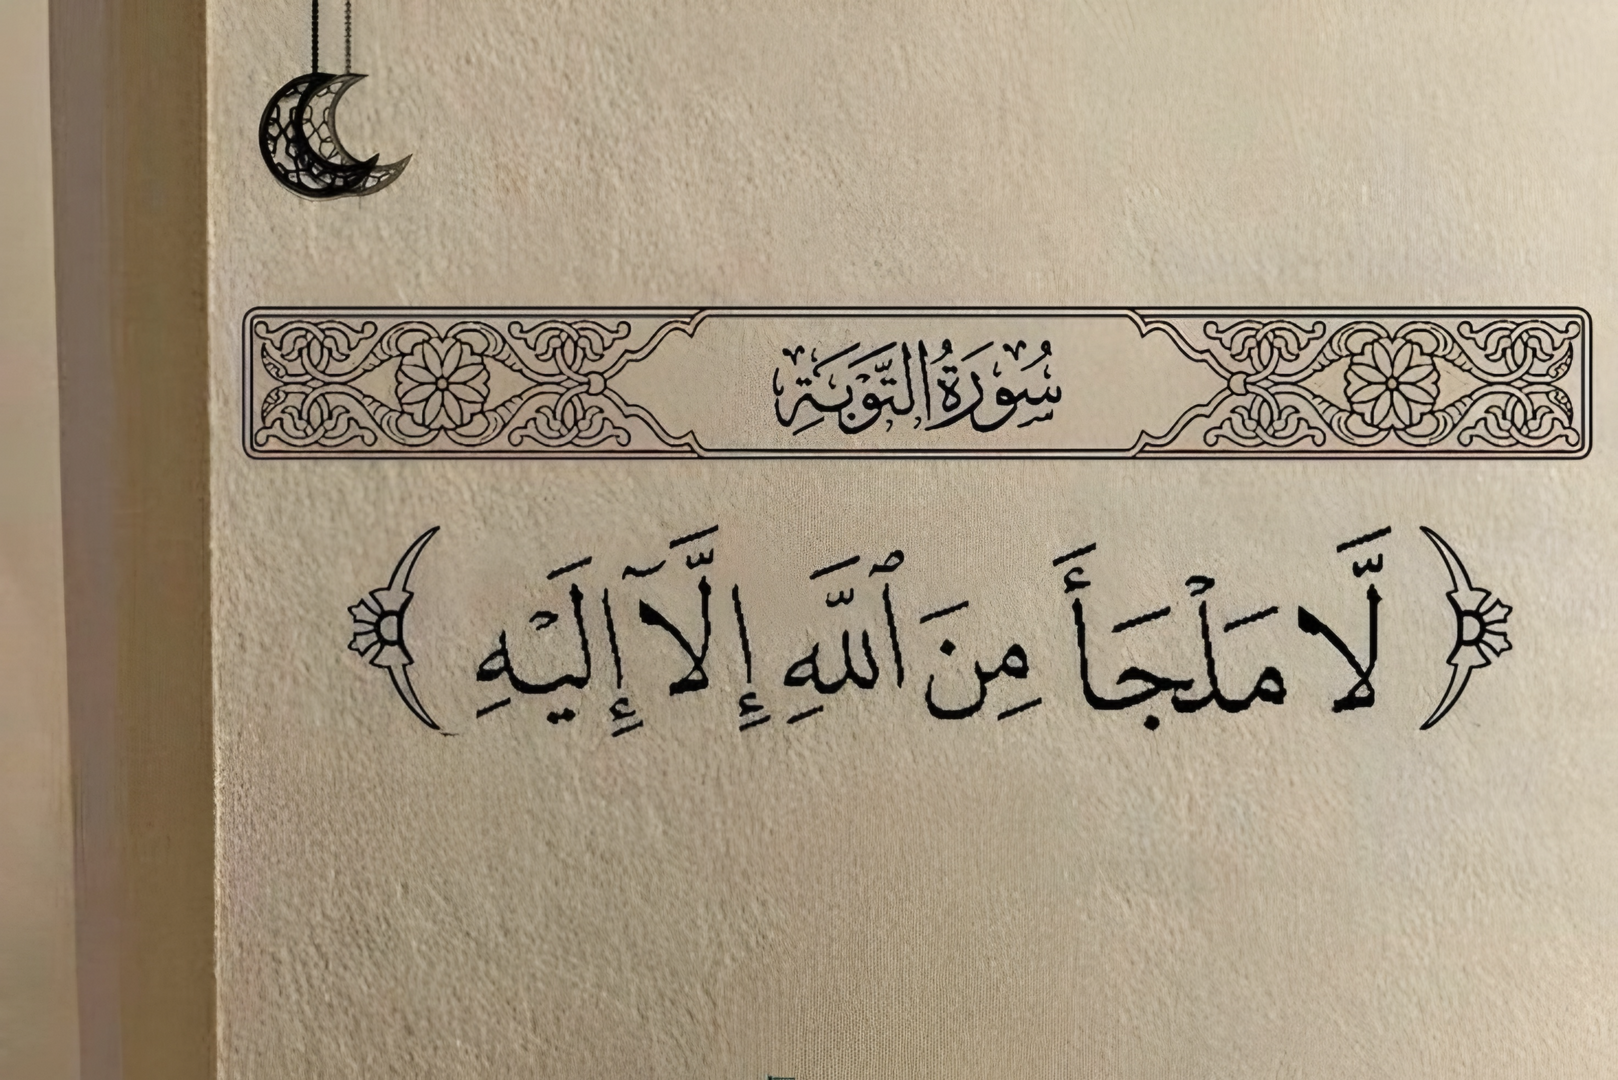 سُورَةُ التَّوْبَةِ
﴿ لَّا مَلْجَأَ مِنَ ٱللَّهِ إِلَّآ إِلَيْهِ ﴾